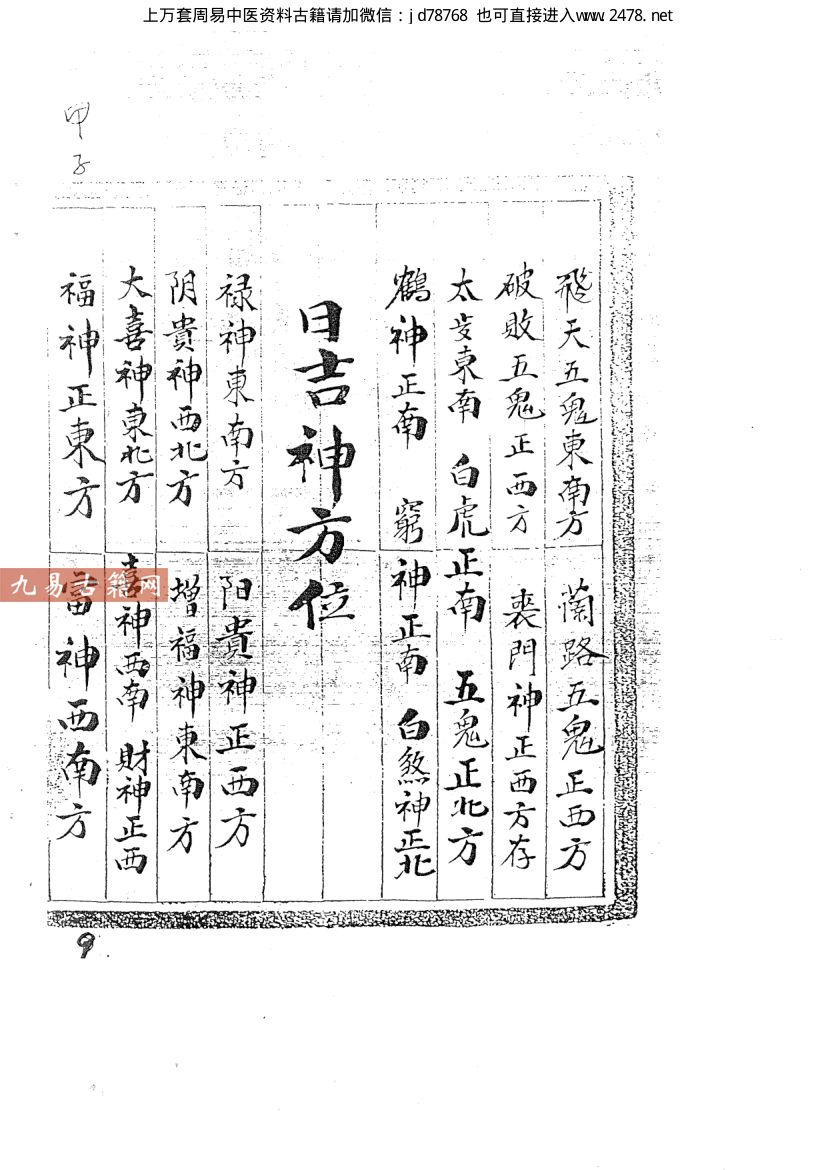 上万套周易中医资料古籍请加微信：jd78768 也可直接进入www.2478.net
甲子
飛天五鬼東南方 蘭路五鬼正西方
破敗五鬼正西方 丧門神正西方存
太岁東南 白虎正南 五鬼正北方
鶴神正南 窮神正南 白煞神正北
日吉神方位
禄神東南方 阳貴神正西方
阴貴神西北方 增福神東南方
大喜神東北方 喜神西南 財神正西
福神正東方 富神西南方
九易古籍网
9